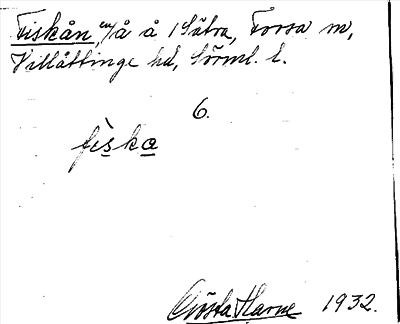 Fiskån, en/å å i Sätra, Forssa sn,
Villåttinge hd, Sörml. l.
6.
fiska
Gösta Harne 1932.